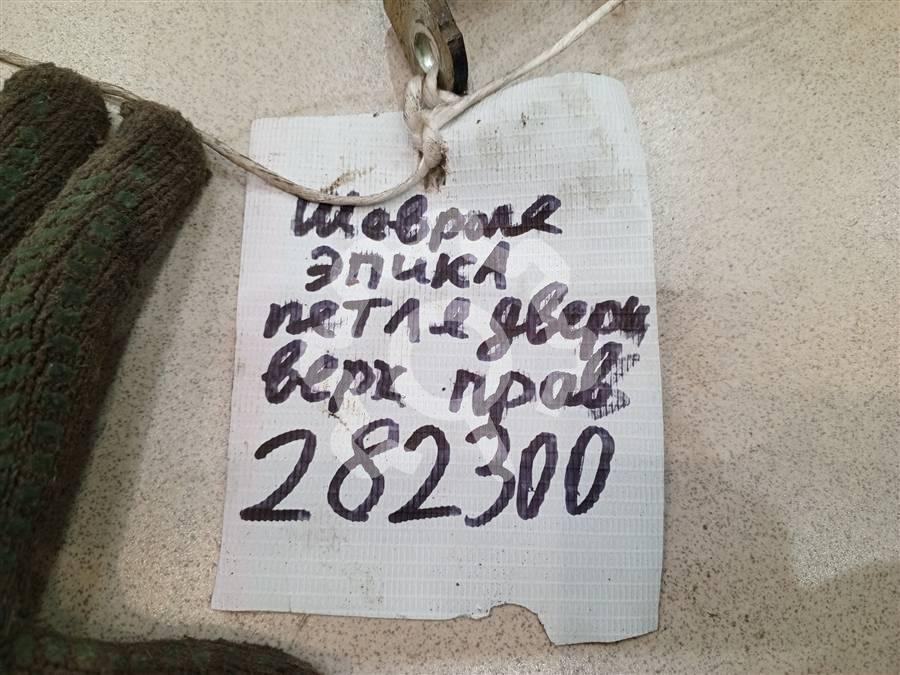 Шевроле
эпика
петля двери
верх прав
282300